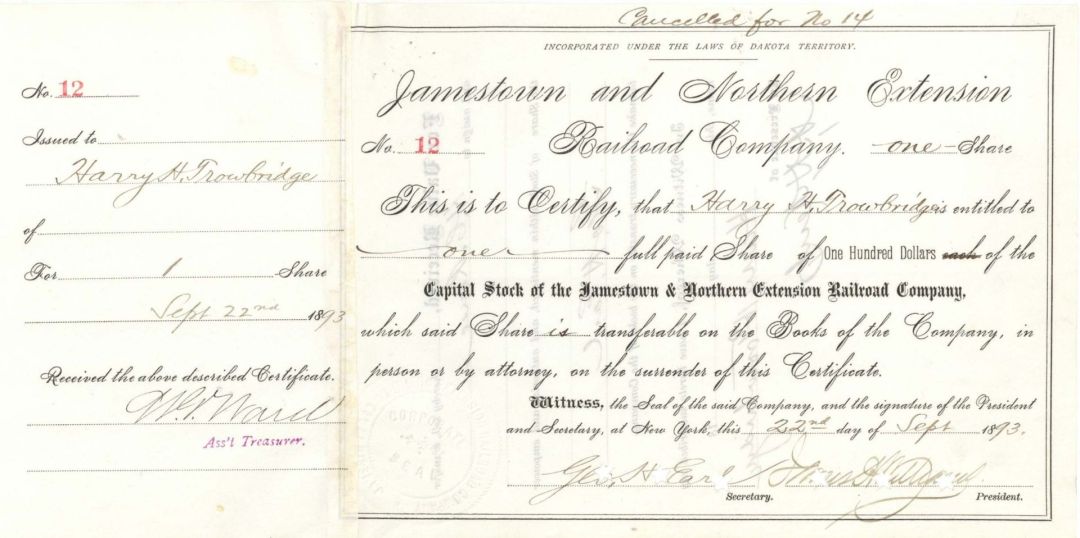 No. 12
Issued to
Harry H. Trowbridge
of
For 1 Share
Sept 22nd 1893
Received the above described Certificate.
Ass't Treasurer.
Cancelled for No 14
INCORPORATED UNDER THE LAWS OF DAKOTA TERRITORY.
Jamestown and Northern Extension
No. 12 Railroad Company. one Share
This is to Certify, that Harry H. Trowbridge is entitled to
one full paid Share of One Hundred Dollars each of the
Capital Stock of the Jamestown & Northern Extension Railroad Company,
which said Share is transferable on the Books of the Company, in
person or by attorney, on the surrender of this Certificate.
Witness, the Seal of the said Company, and the signature of the President
and Secretary, at New York, this 22nd day of Sept 1893.
Geo. H. Earl
Secretary. President.